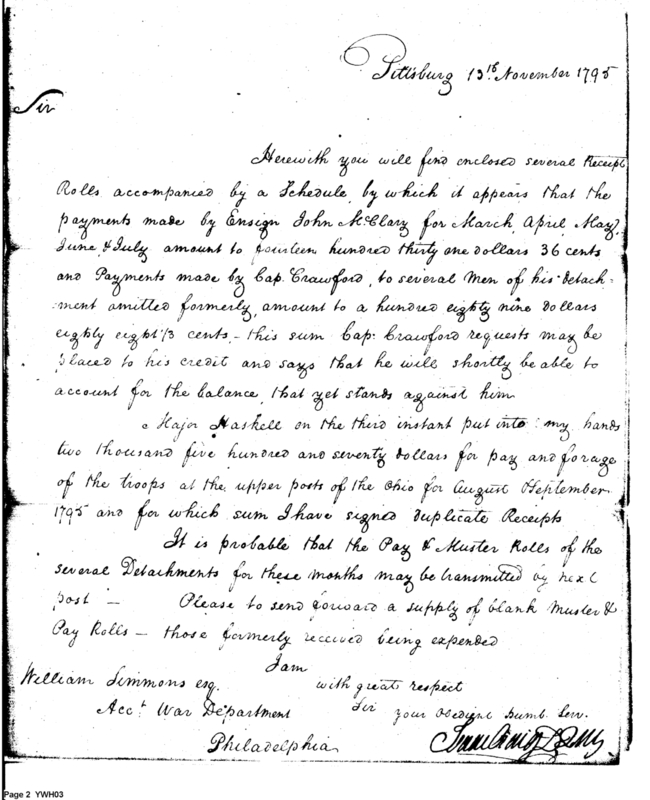 Pittsburg 13th November 1795
Sir
Herewith you will find enclosed several Receipt
Rolls accompanied by a Schedule, by which it appears that the
payments made by Ensign John McClary for March, April, May,
June & July amount to fourteen hundred thirty one dollars 36 cents
and Payments made by Cap. Crawford, to several Men of his detach-
ment omitted formerly, amount to a hundred eighty nine dollars
eighty eight 1/3 cents - this sum Cap: Crawford requests may be
placed to his credit and says that he will shortly be able to
account for the balance, that yet stands against him
Major Haskell on the third instant put into my hands
two thousand five hundred and seventy dollars for pay and forage
of the troops at the upper posts of the Ohio for August September
1795 and for which sum I have signed duplicate Receipts
It is probable that the Pay & Muster Rolls of the
several Detachments for these months may be transmitted by next
post - Please to send forward a supply of blank Muster &
Pay Rolls - those formerly received being expended
I am
William Simmons esq. with great respect
Acct War Department Sir your Obedient humb. Serv.
Philadelphia Isaac Craig
Page 2 YWH03